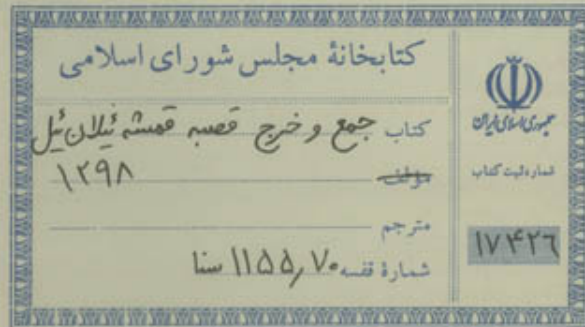 کتابخانهٔ مجلس شورای اسلامی
کتاب جمع و خرج قصبه قمشه ئیلان ئیل
مؤلف ۱۲۹۸
مترجم
شمارهٔ قفسه ۱۱۵۵٫۷۰ سنا
جمهوری اسلامی ایران
شماره ثبت کتاب
۱۷۴۲۶